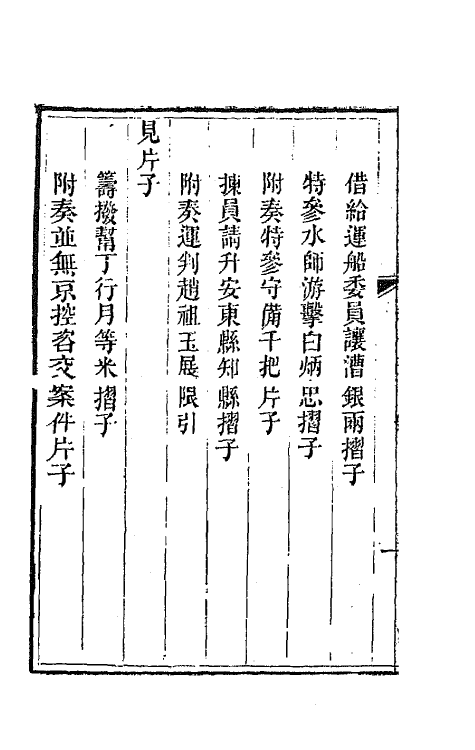 借給運船委員讓漕銀兩摺子
特參水師游擊白炳忠摺子
附奏特參守備千把片子
揀員請升安東縣知縣摺子
附奏運判趙祖玉展限引
見片子
籌撥幫丁行月等米摺子
附奏並無京控咨交案件片子
一